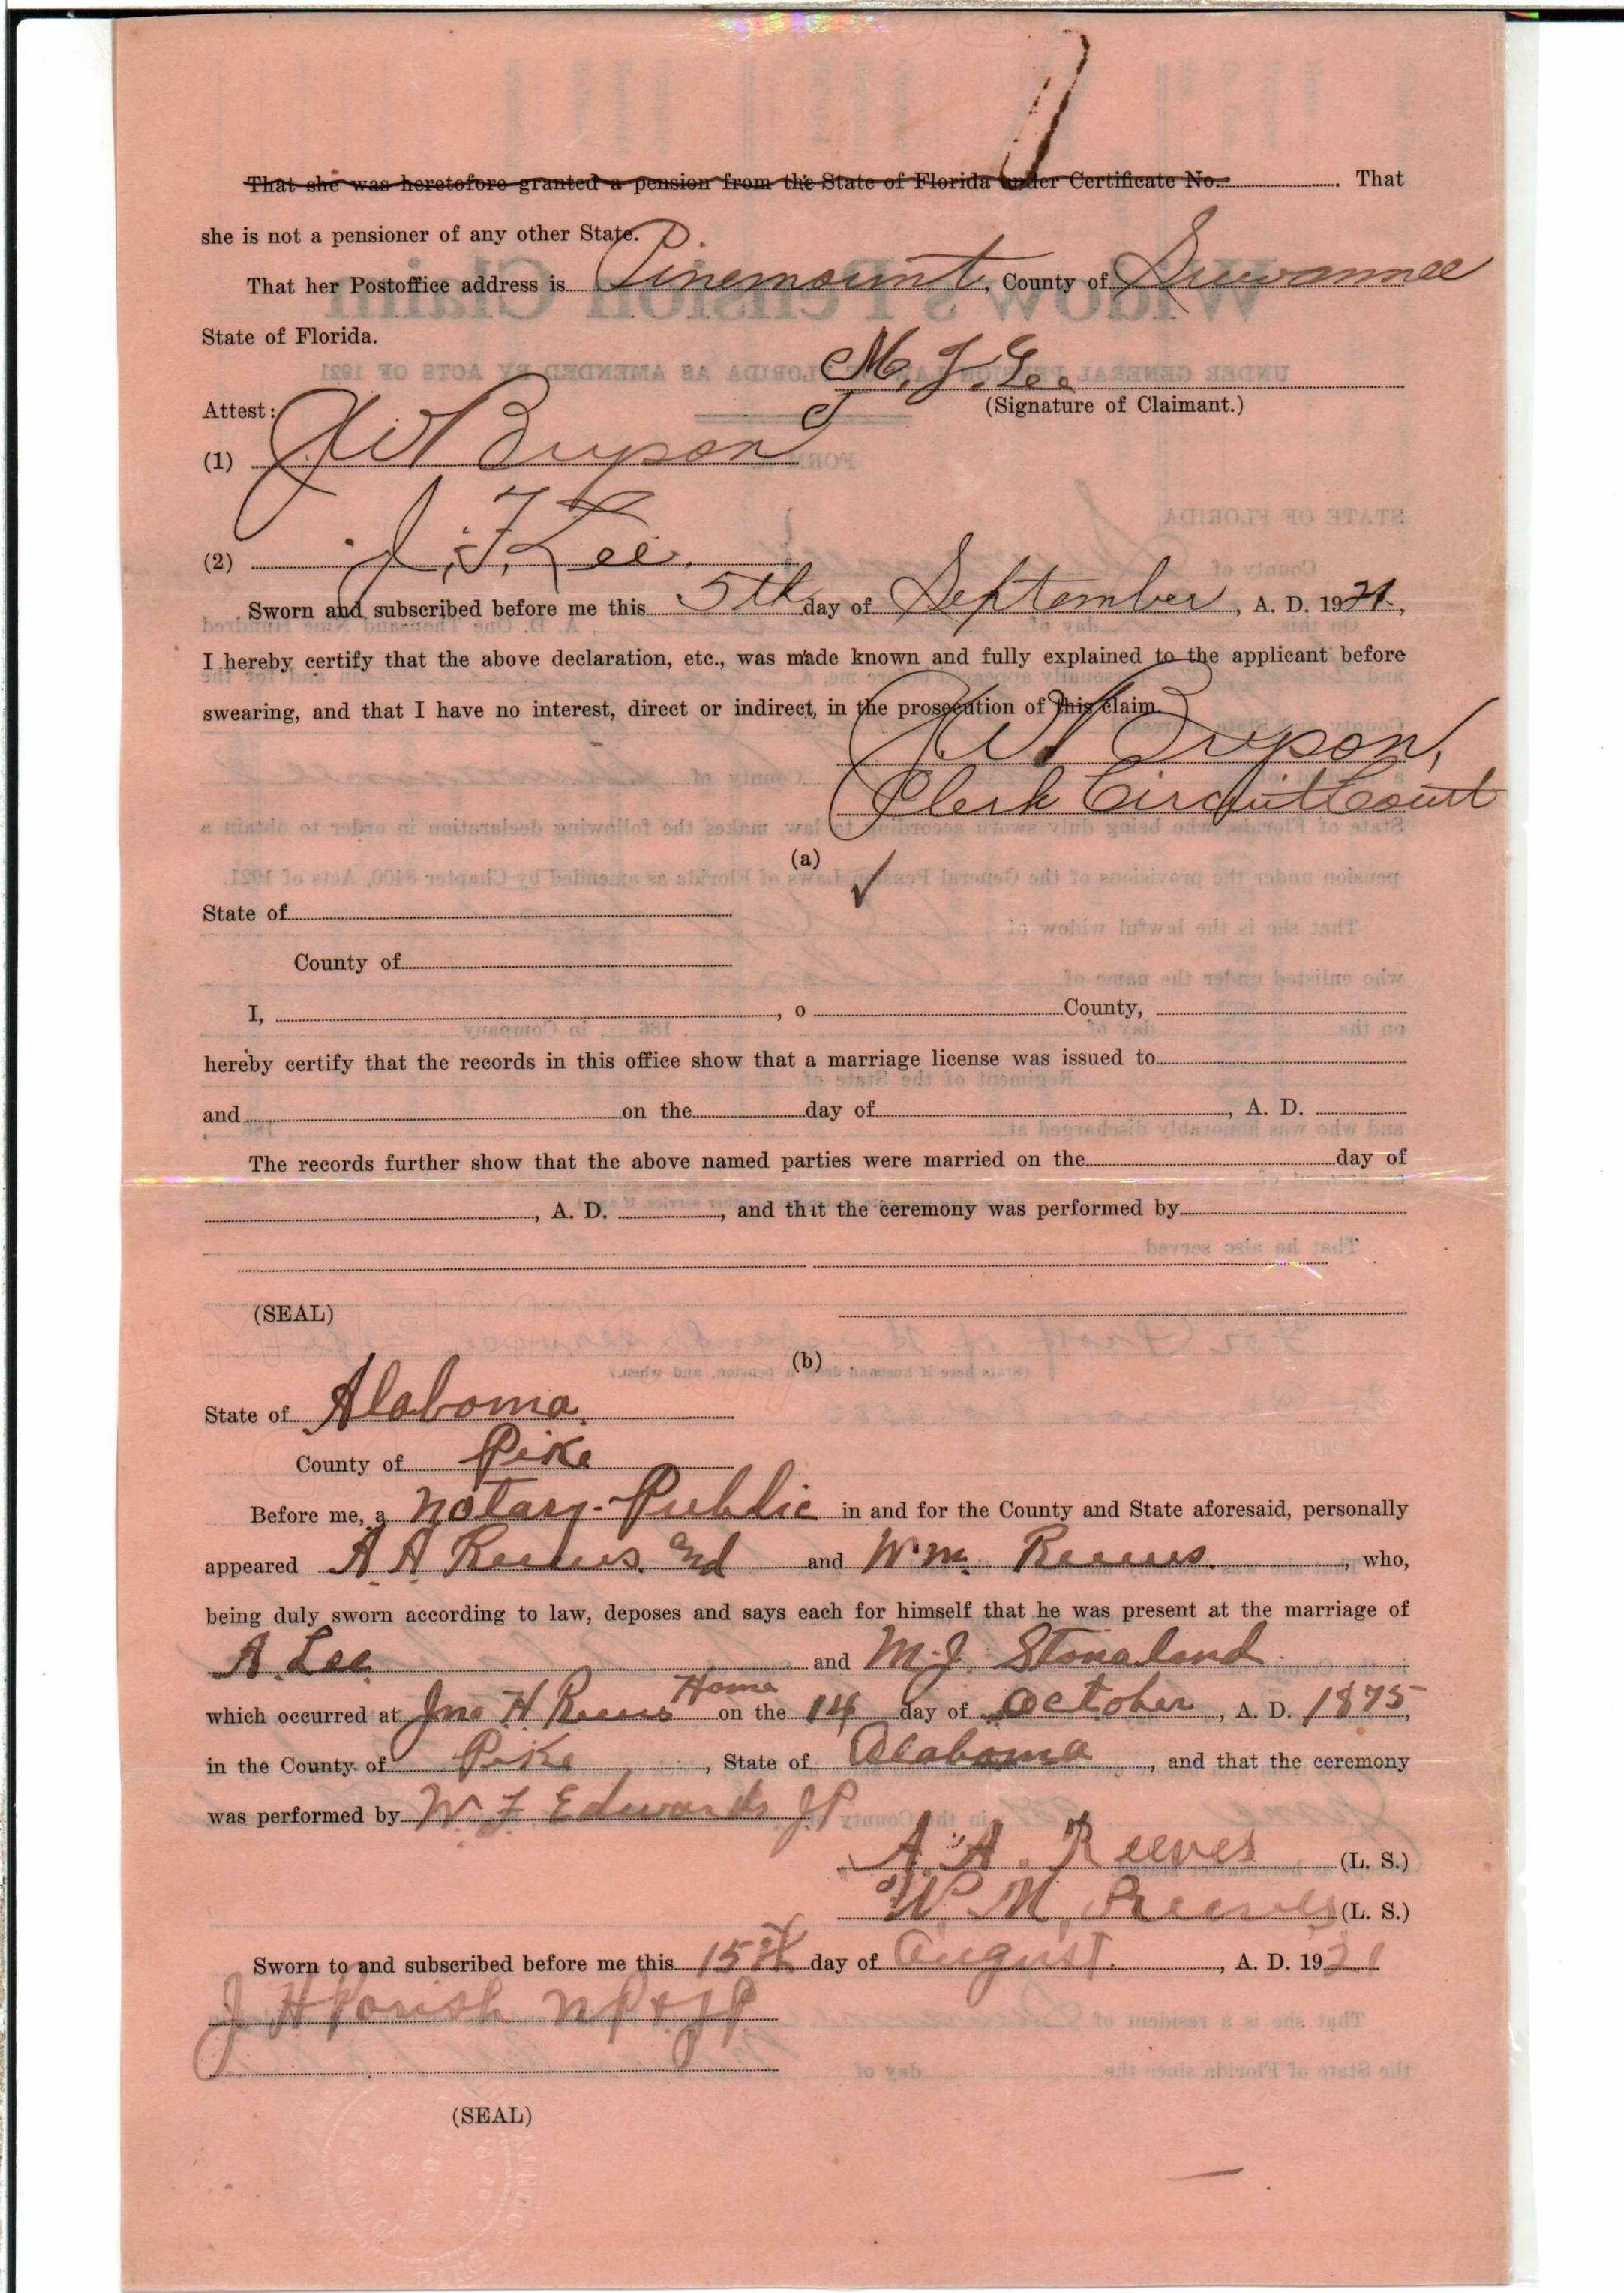 That she was heretofore granted a pension from the State of Florida under Certificate No. . That
she is not a pensioner of any other State.
That her Postoffice address is Pinemount, County of Suwannee
State of Florida.
M. J. Lee
Attest: (Signature of Claimant.)
(1) J W Bryson
(2) J. F. Lee.
Sworn and subscribed before me this 5th day of September, A. D. 1921,
I hereby certify that the above declaration, etc., was made known and fully explained to the applicant before
swearing, and that I have no interest, direct or indirect, in the prosecution of this claim.
J W Bryson,
Clerk Circuit Court
(a)
State of
County of
I, , o County,
hereby certify that the records in this office show that a marriage license was issued to
and on the day of , A. D.
The records further show that the above named parties were married on the day of
, A. D. , and that the ceremony was performed by
(SEAL)
(b)
State of Alabama.
County of Pike
Before me, a Notary-Public in and for the County and State aforesaid, personally
appeared A A Reeves and Wm. Reeves. , who,
being duly sworn according to law, deposes and says each for himself that he was present at the marriage of
A. Lee and M. J. Stonaland
Home
which occurred at Jno H. Reeves on the 14 day of October, A. D. 1875,
in the County of Pike, State of Alabama, and that the ceremony
was performed by W. F Edwards JP
A. A. Reeves (L. S.)
W. M. Reeves (L. S.)
Sworn to and subscribed before me this 15th day of August. , A. D. 1921
J H Parish NP & JP
(SEAL)